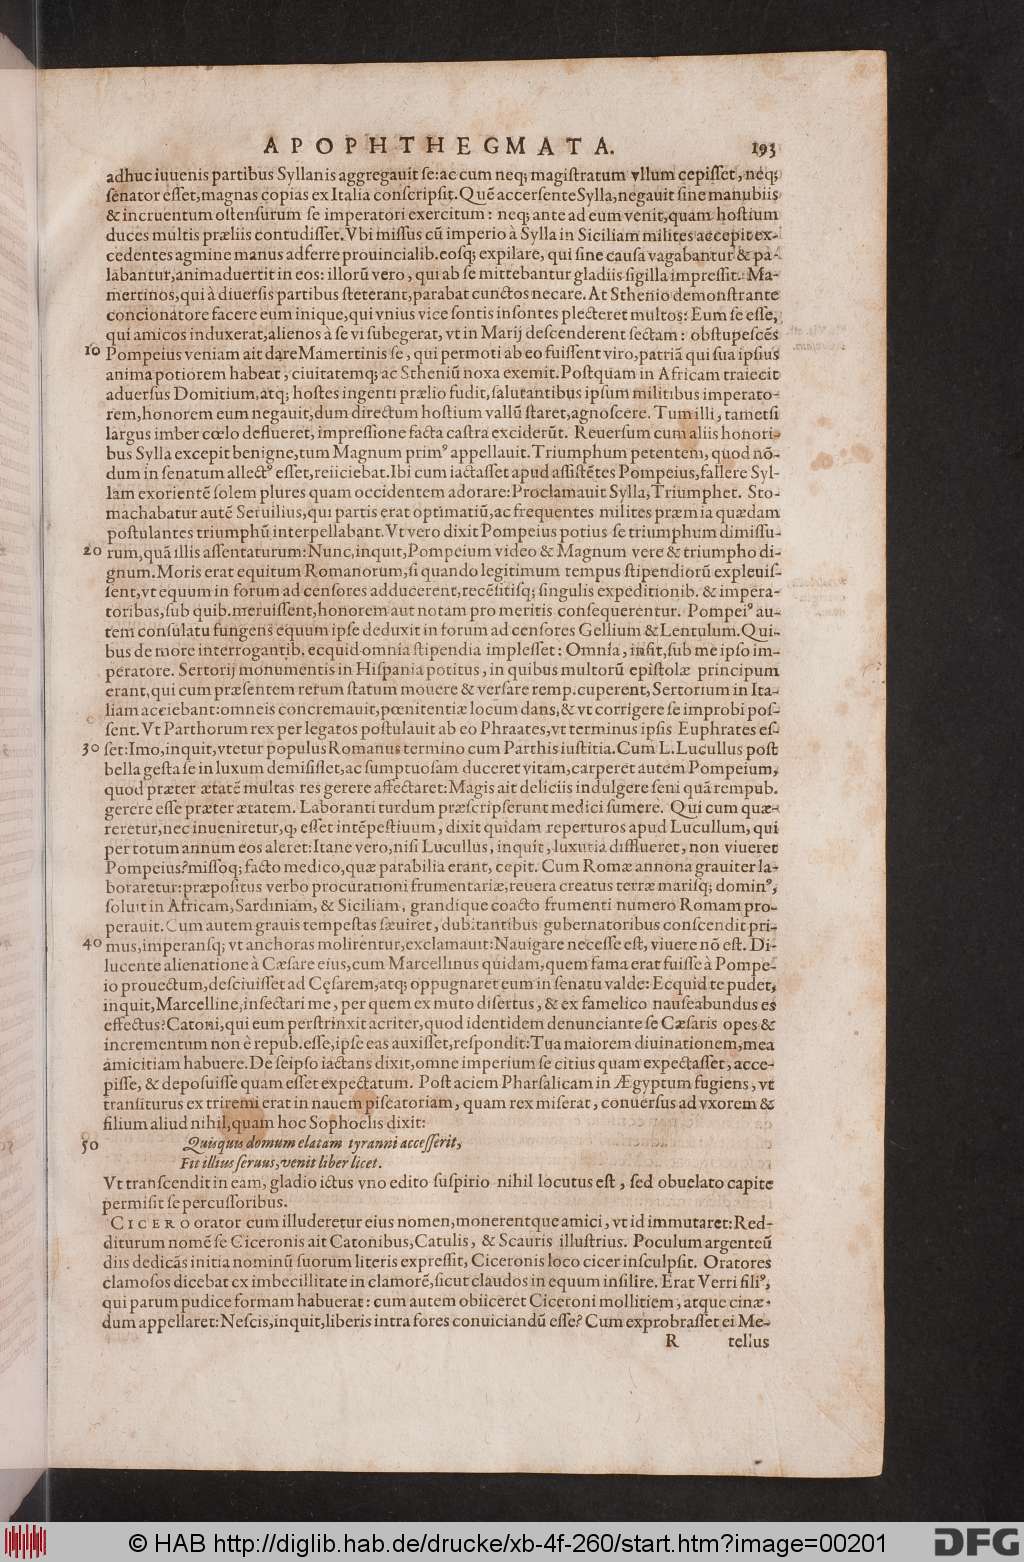 APOPHTHEGMATA. 193
adhuc iuuenis partibus Syllanis aggregauit se:ac cum neq; magistratum vllum cepisset, neq;
senator esset,magnas copias ex Italia conscripsit.Quē accersente Sylla,negauit sine manubiis
& incruentum ostensurum se imperatori exercitum: neq; ante ad eum venit,quam hostium
duces multis præliis contudisset.Vbi missus cū imperio à Sylla in Siciliam milites accepit ex-
cedentes agmine manus adferre prouincialib.eosq; expilare, qui sine causa vagabantur & pa-
labantur,animaduertit in eos: illorū vero, qui ab se mittebantur gladiis sigilla impressit. Ma-
mertinos,qui à diuersis partibus steterant,parabat cunctos necare. At Sthenio demonstrante
concionatore facere eum inique,qui vnius vice sontis insontes plecteret multos: Eum se esse,
qui amicos induxerat,alienos à se vi subegerat, vt in Marij descenderent sectam: obstupescēs
10 Pompeius veniam ait dare Mamertinis se, qui permoti ab eo fuissent viro,patriā qui sua ipsius
anima potiorem habeat, ciuitatemq; ac Stheniū noxa exemit. Postquam in Africam traiecit
aduersus Domitium,atq; hostes ingenti prælio fudit,salutantibus ipsum militibus imperato-
rem,honorem eum negauit,dum directum hostium vallū staret,agnoscere. Tum illi, tametsi
largus imber cœlo deflueret, impressione facta castra exciderūt. Reuersum cum aliis honori-
bus Sylla excepit benigne,tum Magnum primꝰ appellauit. Triumphum petentem, quod nō-
dum in senatum allectꝰ esset,reiiciebat.Ibi cum iactasset apud assistētes Pompeius,fallere Syl-
lam exorientē solem plures quam occidentem adorare:Proclamauit Sylla,Triumphet. Sto-
machabatur autē Seruilius,qui partis erat optimatiū,ac frequentes milites præmia quædam
postulantes triumphū interpellabant. Vt vero dixit Pompeius potius se triumphum dimissu-
20 rum,quā illis assentaturum:Nunc,inquit,Pompeium video & Magnum vere & triumpho di-
gnum. Moris erat equitum Romanorum,si quando legitimum tempus stipendiorū expleuis-
sent,vt equum in forum ad censores adducerent,recēsitisq; singulis expeditionib. & impera-
toribus,sub quib.meruissent,honorem aut notam pro meritis consequerentur. Pompeiꝰ au-
tem consulatu fungens equum ipse deduxit in forum ad censores Gellium & Lentulum. Qui-
bus de more interrogantib. ecquid omnia stipendia implesset: Omnia, insit,sub me ipso im-
peratore. Sertorij monumentis in Hispania potitus, in quibus multorū epistolæ principum
erant,qui cum præsentem rerum statum mouere & versare remp.cuperent,Sertorium in Ita-
liam acciebant:omneis concremauit,pœnitentiæ locum dans,& vt corrigere se improbi pos-
sent. Vt Parthorum rex per legatos postulauit ab eo Phraates,vt terminus ipsis Euphrates es-
30 set:Imo,inquit,vtetur populus Romanus termino cum Parthis iustitia.Cum L.Lucullus post
bella gesta se in luxum demisisset,ac sumptuosam duceret vitam,carperet autem Pompeium,
quod præter ætatē multas res gerere affectaret:Magis ait deliciis indulgere seni quā rempub.
gerere esse præter ætatem. Laboranti turdum præscripserunt medici sumere. Qui cum quæ-
reretur,nec inueniretur,q; esset intēpestiuum, dixit quidam reperturos apud Lucullum, qui
per totum annum eos aleret:Itane vero,nisi Lucullus, inquit, luxuria difflueret, non viueret
Pompeius?missoq; facto medico,quæ parabilia erant, cepit. Cum Romæ annona grauiter la-
boraretur:præpositus verbo procurationi frumentariæ,reuera creatus terræ marisq; dominꝰ,
soluit in Africam,Sardiniam, & Siciliam, grandique coacto frumenti numero Romam pro-
perauit. Cum autem grauis tempestas sæuiret, dubitantibus gubernatoribus conscendit pri-
40 mus,imperansq; vt anchoras molirentur,exclamauit:Nauigare necesse est, viuere nō est. Di-
lucente alienatione à Cæsare eius,cum Marcellinus quidam,quem fama erat fuisse à Pompe-
io prouectum,desciuisset ad Cęsarem,atq; oppugnaret eum in senatu valde: Ecquid te pudet,
inquit,Marcelline,insectari me, per quem ex muto disertus, & ex famelico nauseabundus es
effectus?Catoni,qui eum perstrinxit acriter,quod identidem denunciante se Cæsaris opes &
incrementum non è repub.esse,ipse eas auxisset,respondit:Tua maiorem diuinationem,mea
amicitiam habuere. De seipso iactans dixit,omne imperium se citius quam expectasset, acce-
pisse, & deposuisse quam esset expectatum. Post aciem Pharsalicam in Ægyptum fugiens, vt
transiturus ex triremi erat in nauem piscatoriam, quam rex miserat, conuersus ad vxorem &
filium aliud nihil,quam hoc Sophoclis dixit:
50 Quisquis domum elatam tyranni accesserit,
Fit illius seruus,venit liber licet.
Vt transcendit in eam, gladio ictus vno edito suspirio nihil locutus est, sed obuelato capite
permisit se percussoribus.
CICERO orator cum illuderetur eius nomen,monerentque amici, vt id immutaret:Red-
diturum nomē se Ciceronis ait Catonibus,Catulis, & Scauris illustrius. Poculum argenteū
diis dedicās initia nominū suorum literis expressit, Ciceronis loco cicer insculpsit. Oratores
clamosos dicebat ex imbecillitate in clamorē,sicut claudos in equum insilire. Erat Verri filiꝰ,
qui parum pudice formam habuerat: cum autem obiiceret Ciceroni mollitiem, atque cinæ-
dum appellaret:Nescis,inquit,liberis intra fores conuiciandū esse? Cum exprobrasset ei Me-
R tellus
© HAB http://diglib.hab.de/drucke/xb-4f-260/start.htm?image=00201 DFG